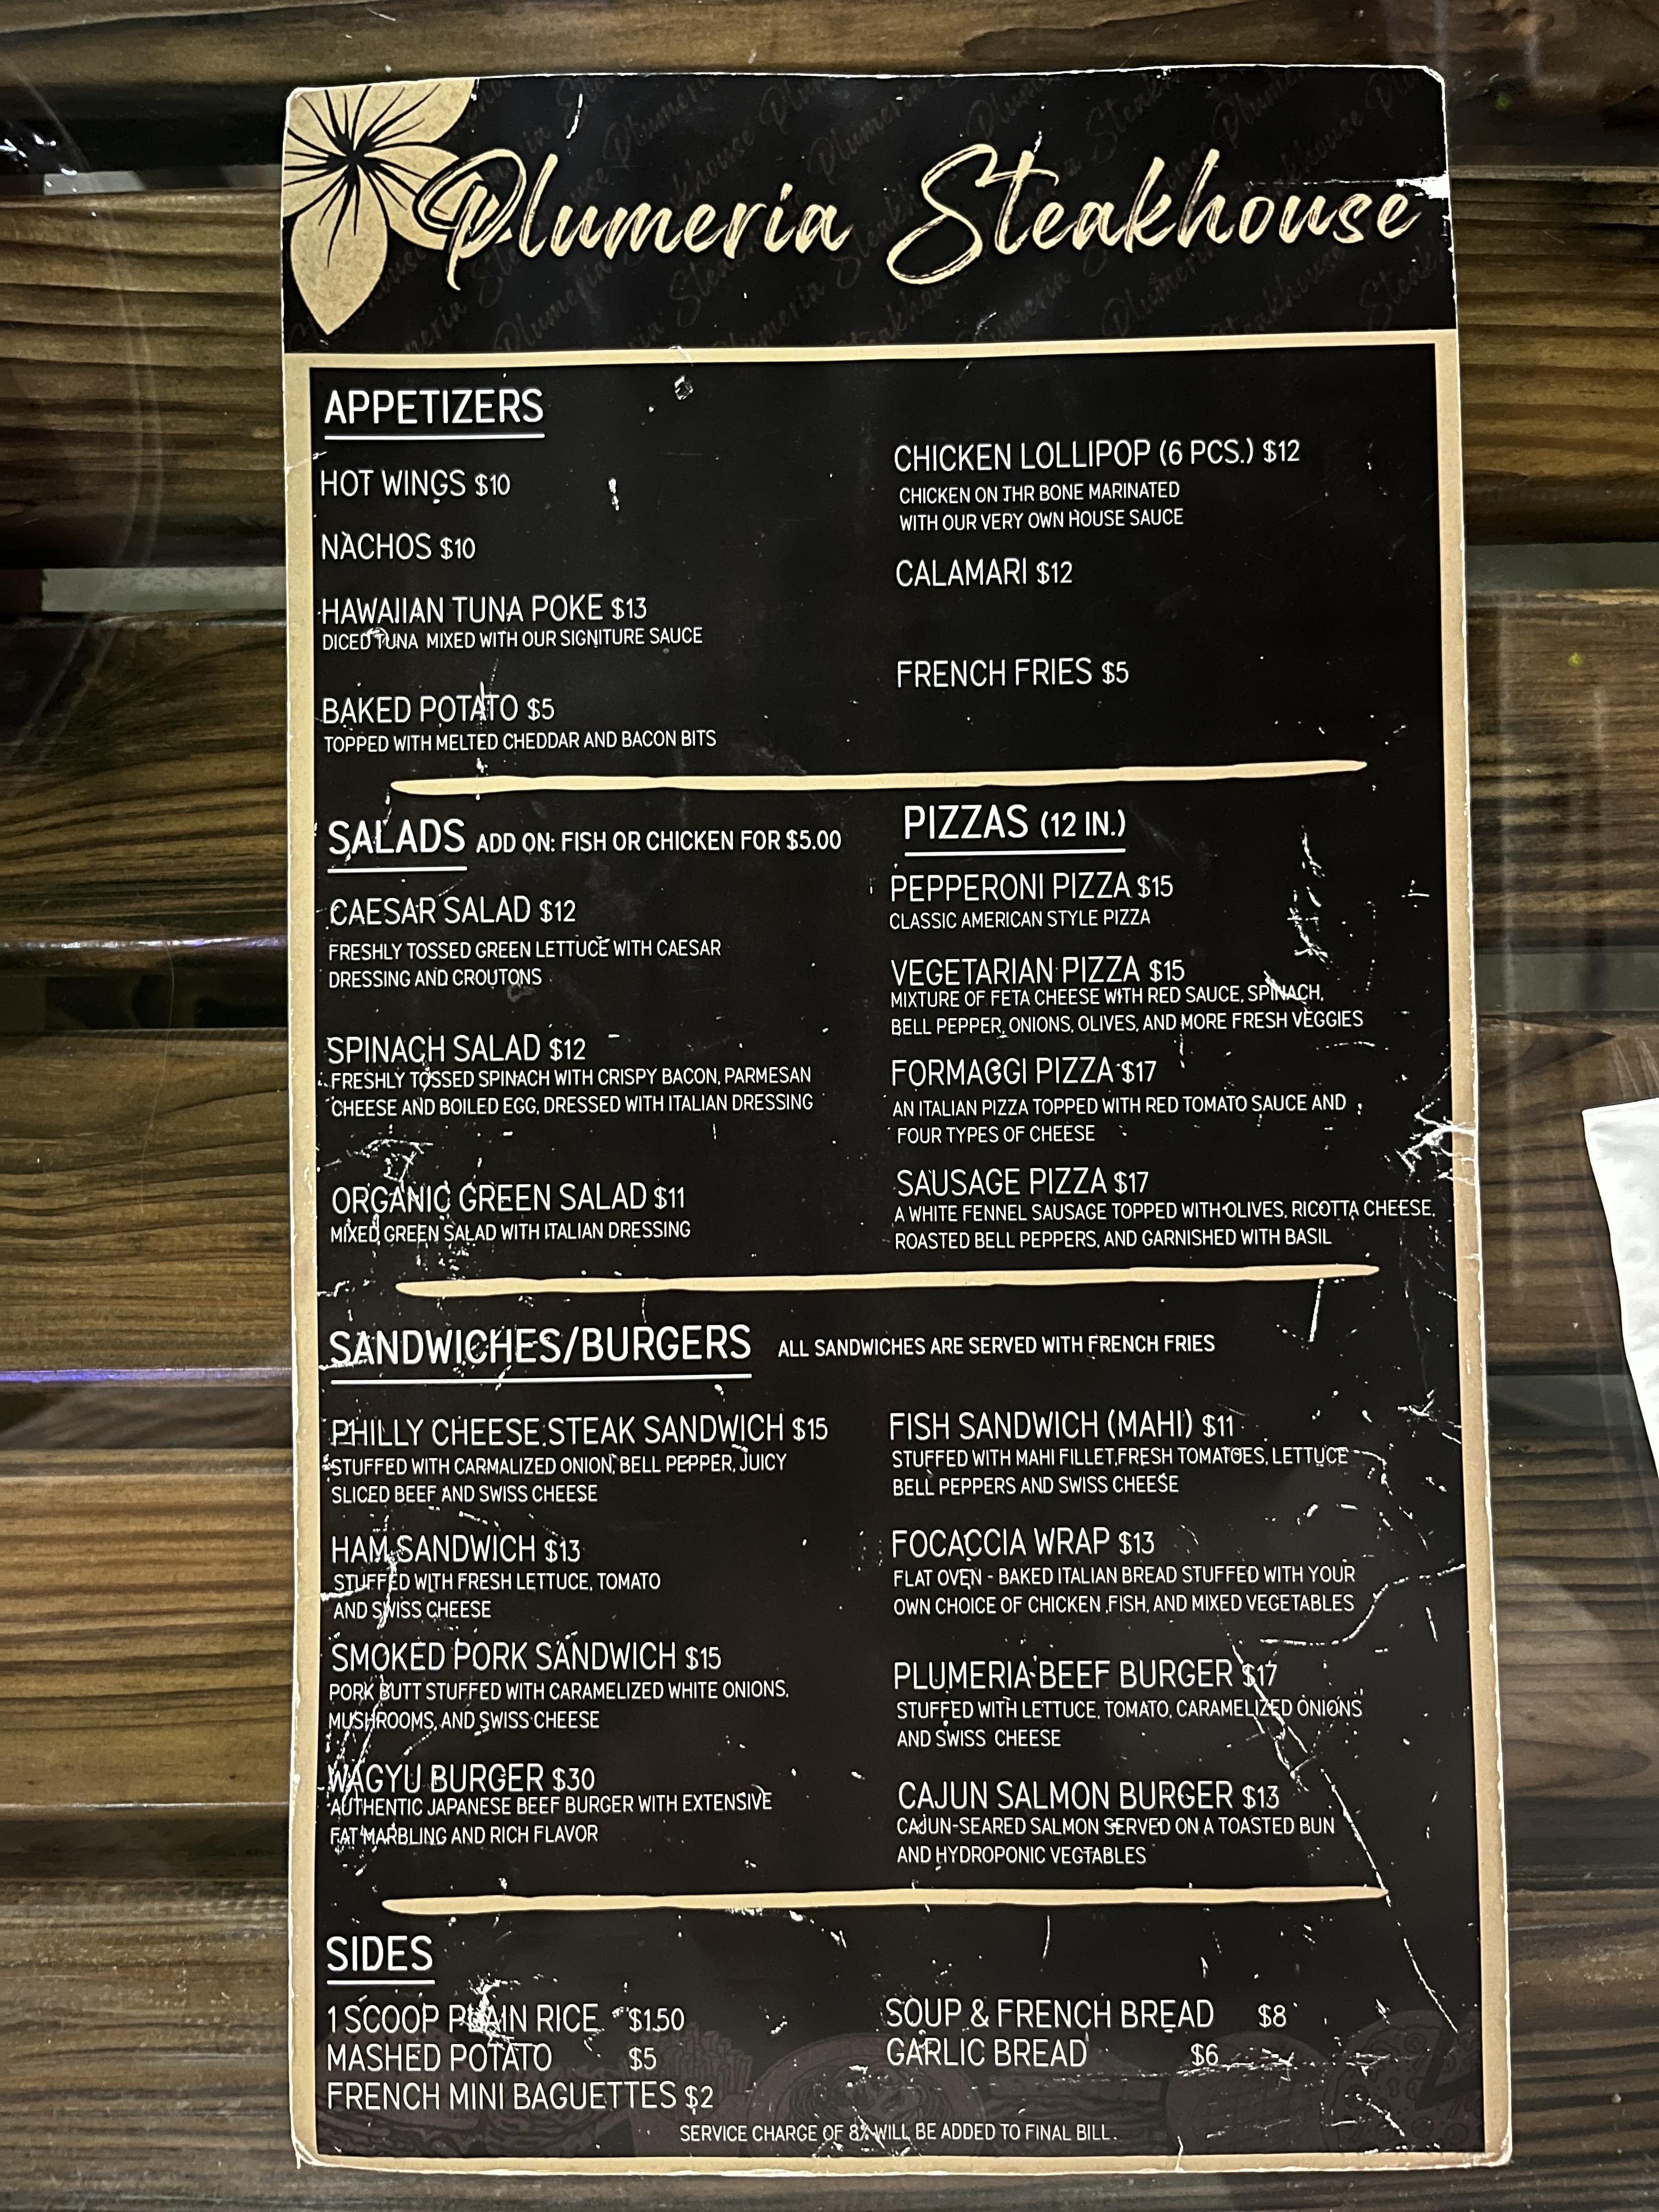 Plumeria Steakhouse
APPETIZERS
HOT WINGS $10
NACHOS $10
HAWAIIAN TUNA POKE $13
DICED TUNA MIXED WITH OUR SIGNITURE SAUCE
BAKED POTATO $5
TOPPED WITH MELTED CHEDDAR AND BACON BITS
CHICKEN LOLLIPOP (6 PCS.) $12
CHICKEN ON THR BONE MARINATED
WITH OUR VERY OWN HOUSE SAUCE
CALAMARI $12
FRENCH FRIES $5
SALADS ADD ON: FISH OR CHICKEN FOR $5.00
CAESAR SALAD $12
FRESHLY TOSSED GREEN LETTUCE WITH CAESAR
DRESSING AND CROUTONS
SPINACH SALAD $12
FRESHLY TOSSED SPINACH WITH CRISPY BACON, PARMESAN
CHEESE AND BOILED EGG, DRESSED WITH ITALIAN DRESSING
ORGANIC GREEN SALAD $11
MIXED GREEN SALAD WITH ITALIAN DRESSING
PIZZAS (12 IN.)
PEPPERONI PIZZA $15
CLASSIC AMERICAN STYLE PIZZA
VEGETARIAN PIZZA $15
MIXTURE OF FETA CHEESE WITH RED SAUCE, SPINACH,
BELL PEPPER, ONIONS, OLIVES, AND MORE FRESH VEGGIES
FORMAGGI PIZZA $17
AN ITALIAN PIZZA TOPPED WITH RED TOMATO SAUCE AND
FOUR TYPES OF CHEESE
SAUSAGE PIZZA $17
A WHITE FENNEL SAUSAGE TOPPED WITH OLIVES, RICOTTA CHEESE,
ROASTED BELL PEPPERS, AND GARNISHED WITH BASIL
SANDWICHES/BURGERS ALL SANDWICHES ARE SERVED WITH FRENCH FRIES
PHILLY CHEESE STEAK SANDWICH $15
STUFFED WITH CARMALIZED ONION, BELL PEPPER, JUICY
SLICED BEEF AND SWISS CHEESE
HAM SANDWICH $13
STUFFED WITH FRESH LETTUCE, TOMATO
AND SWISS CHEESE
SMOKED PORK SANDWICH $15
PORK BUTT STUFFED WITH CARAMELIZED WHITE ONIONS,
MUSHROOMS, AND SWISS CHEESE
WAGYU BURGER $30
AUTHENTIC JAPANESE BEEF BURGER WITH EXTENSIVE
FAT MARBLING AND RICH FLAVOR
FISH SANDWICH (MAHI) $11
STUFFED WITH MAHI FILLET,FRESH TOMATOES, LETTUCE
BELL PEPPERS AND SWISS CHEESE
FOCACCIA WRAP $13
FLAT OVEN - BAKED ITALIAN BREAD STUFFED WITH YOUR
OWN CHOICE OF CHICKEN ,FISH, AND MIXED VEGETABLES
PLUMERIA BEEF BURGER $17
STUFFED WITH LETTUCE, TOMATO, CARAMELIZED ONIONS
AND SWISS CHEESE
CAJUN SALMON BURGER $13
CAJUN-SEARED SALMON SERVED ON A TOASTED BUN
AND HYDROPONIC VEGTABLES
SIDES
1 SCOOP PLAIN RICE $1.50
MASHED POTATO $5
FRENCH MINI BAGUETTES $2
SOUP & FRENCH BREAD $8
GARLIC BREAD $6
SERVICE CHARGE OF 8% WILL BE ADDED TO FINAL BILL.